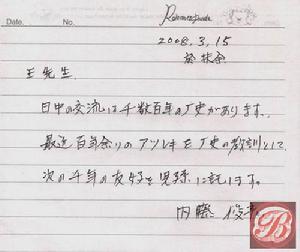 Date. No.
2008.3.15
王先生
日中の交流は千数百年の歴史があります。
最近百年余りのアツレキを歴史の教訓として
次の千年の友好を見孫に託します。
内藤
B